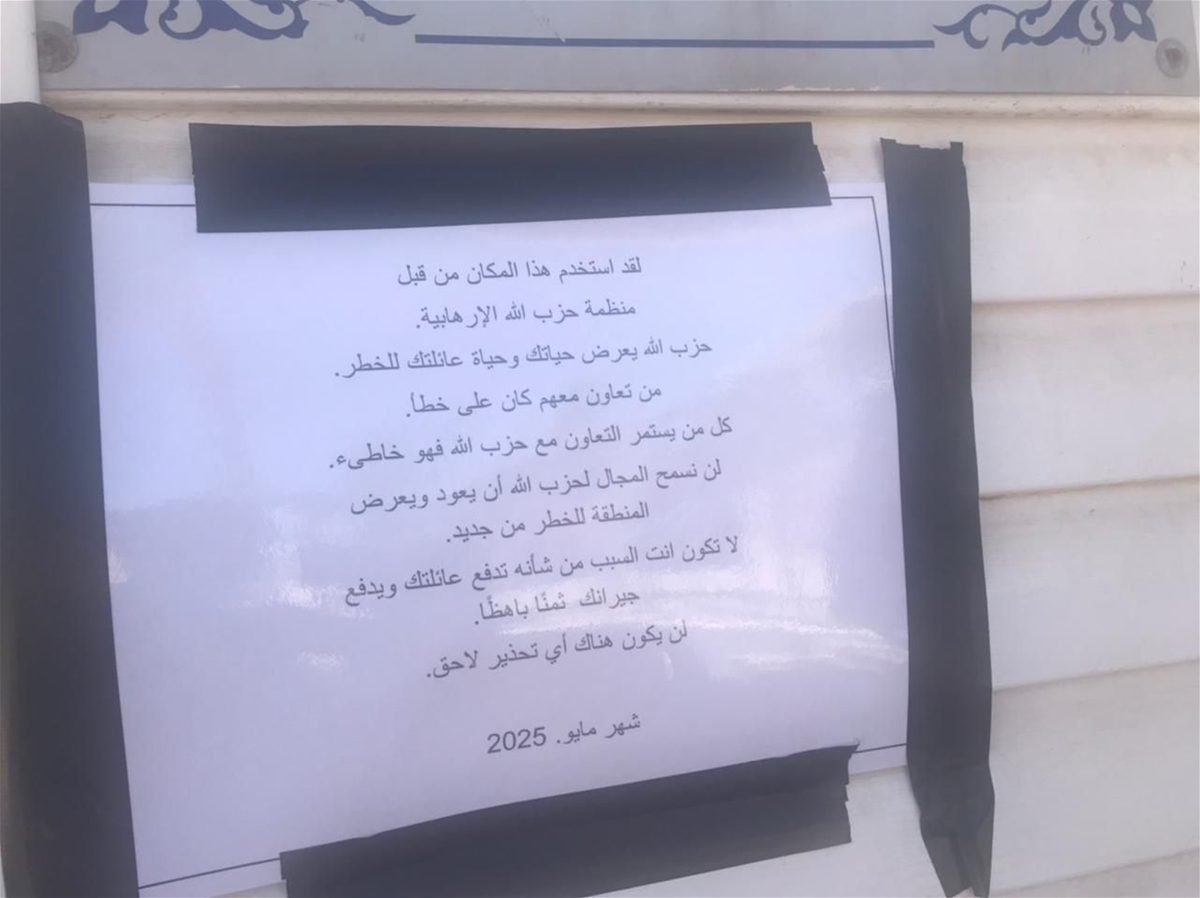 لقد استخدم هذا المكان من قبل
منظمة حزب الله الإرهابية.
حزب الله يعرض حياتك وحياة عائلتك للخطر.
من تعاون معهم كان على خطأ.
كل من يستمر التعاون مع حزب الله فهو خاطىء.
لن نسمح المجال لحزب الله أن يعود ويعرض
المنطقة للخطر من جديد.
لا تكون انت السبب من شأنه تدفع عائلتك ويدفع
جيرانك ثمنًا باهظًا.
لن يكون هناك أي تحذير لاحق.
شهر مايو. 2025